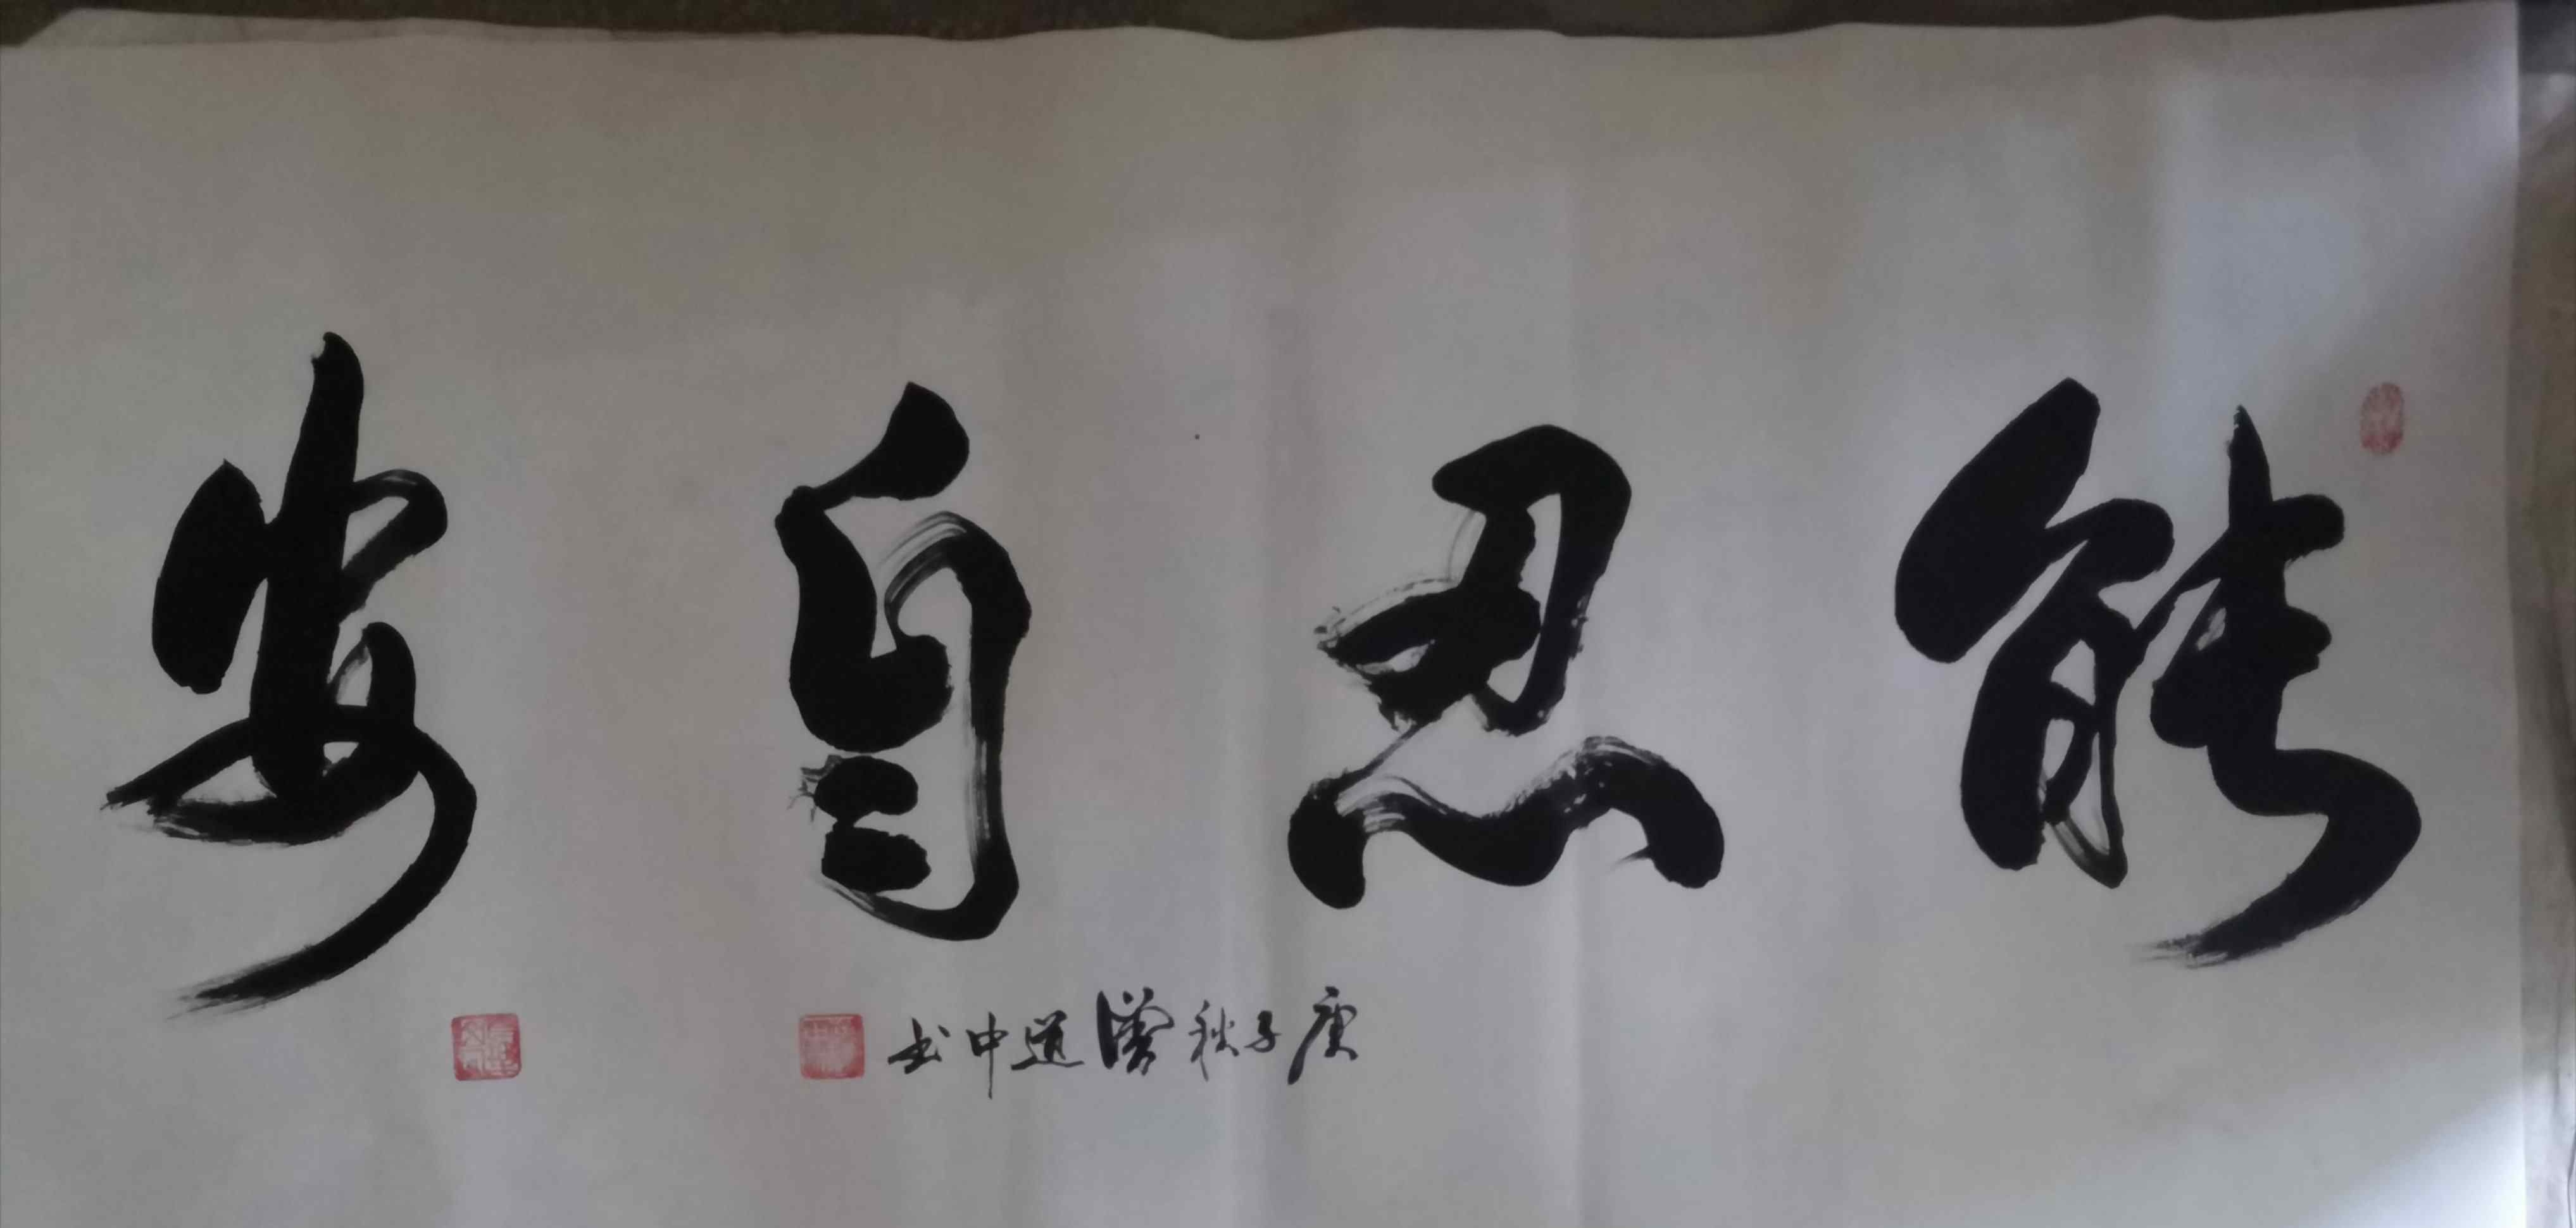 能忍自安
庚子秋 道中书